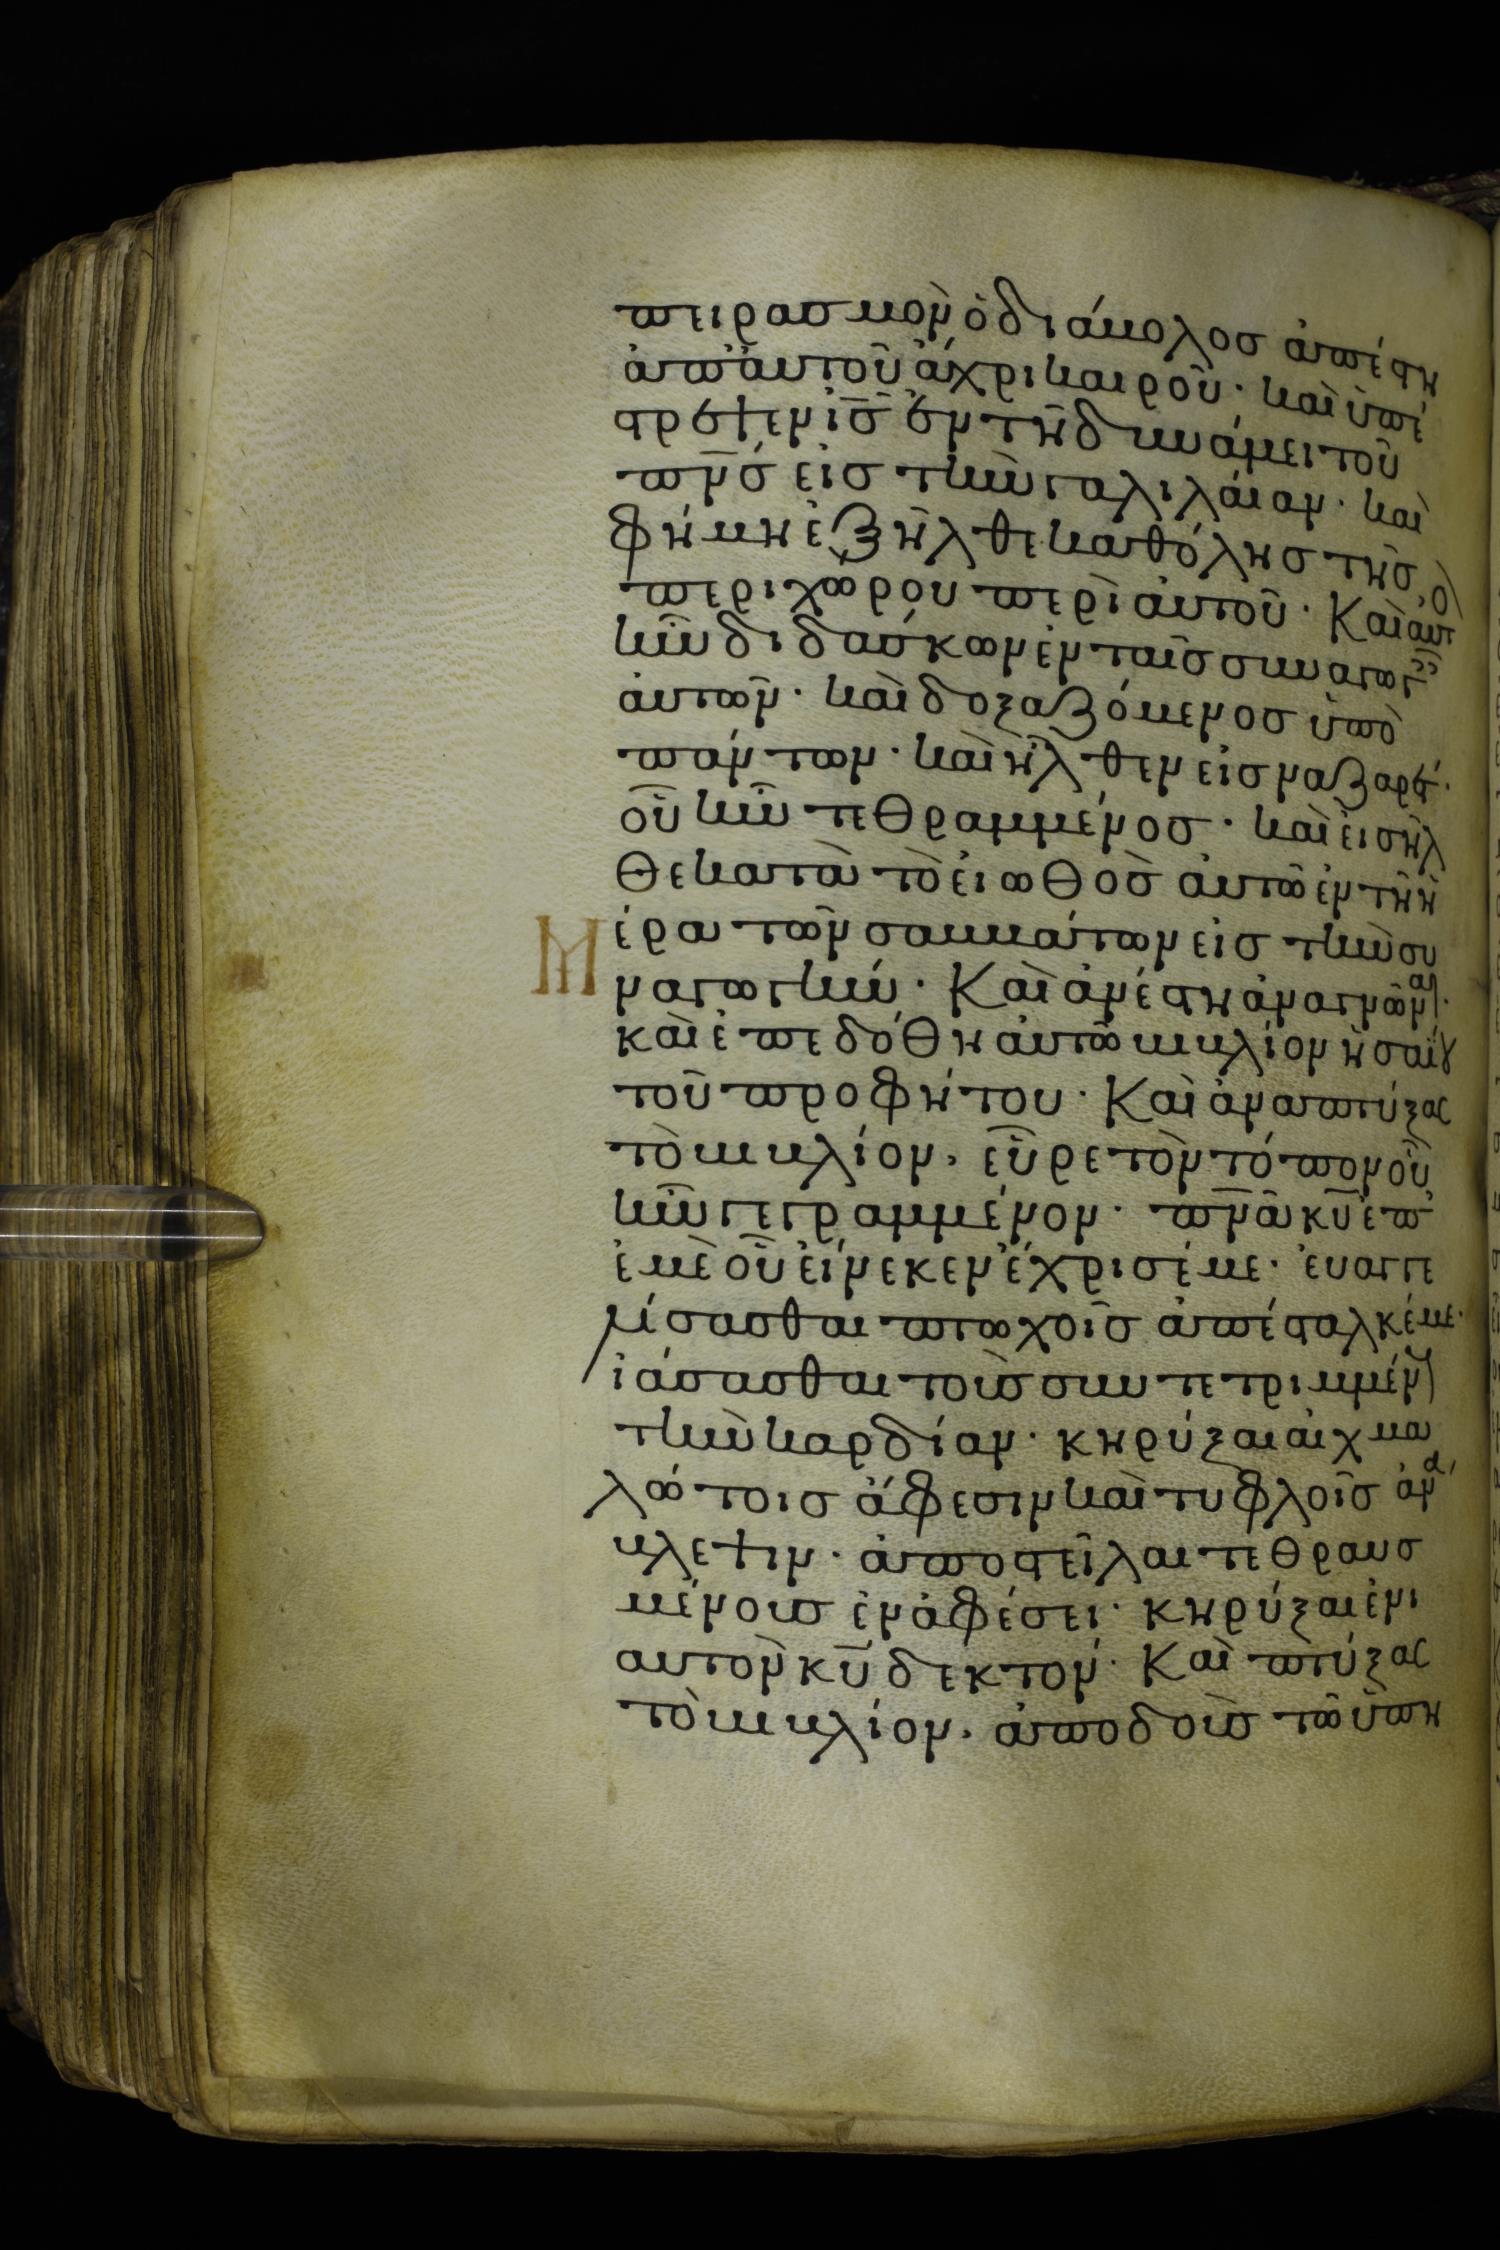 πειρασμὸν ὁ διάβολος ἀπέστη
ἀπ' αὐτοῦ ἄχρι καιροῦ · καὶ ὑπέ
στρεψεν ὁ ις ἐν τῆ δυνάμει τοῦ
πνς εἰς τὴν γαλιλαίαν · καὶ
φήμη ἐξῆλθε καθ' ὅλης τῆς
περιχώρου περὶ αὐτοῦ · Καὶ αὐτὸς
ἦν διδάσκων ἐν ταῖς συναγωγ
αὐτῶν · καὶ δοξαζόμενος ὑπὸ
πάντων · καὶ ἦλθεν εἰς ναζαρέτ ·
οὗ ἦν τεθραμμένος · καὶ εἰσῆλ
θε κατὰ τὸ εἰωθὸς αὐτῶ ἐν τῆ ἡ
μέρα τῶν σαββάτων εἰς τὴν συ
ναγωγήν · Καὶ ἀνέστη ἀναγνῶναι ·
καὶ ἐπεδόθη αὐτῶ βιβλίον ἡσαΐου
τοῦ προφήτου · Καὶ ἀναπτύξας
τὸ βιβλίον, εὗρε τὸν τόπον οὗ
ἦν γεγραμμένον · πνα κυ ἐπ'
ἐμὲ οὗ εἵνεκεν ἔχρισέ με · εὐαγγε
λίσασθαι πτωχοῖς ἀπέσταλκέ με ·
ἰάσασθαι τοὺς συντετριμμέν
τὴν καρδίαν · κηρύξαι αἰχμα
λώτοις ἄφεσιν καὶ τυφλοῖς ἀνά
βλεψιν · ἀποστεῖλαι τεθραυσ
μένους ἐν ἀφέσει · κηρύξαι ἐνι
αυτὸν κυ δεκτόν · Καὶ πτύξας
τὸ βιβλίον, ἀποδοὺς τῶ ὑπη